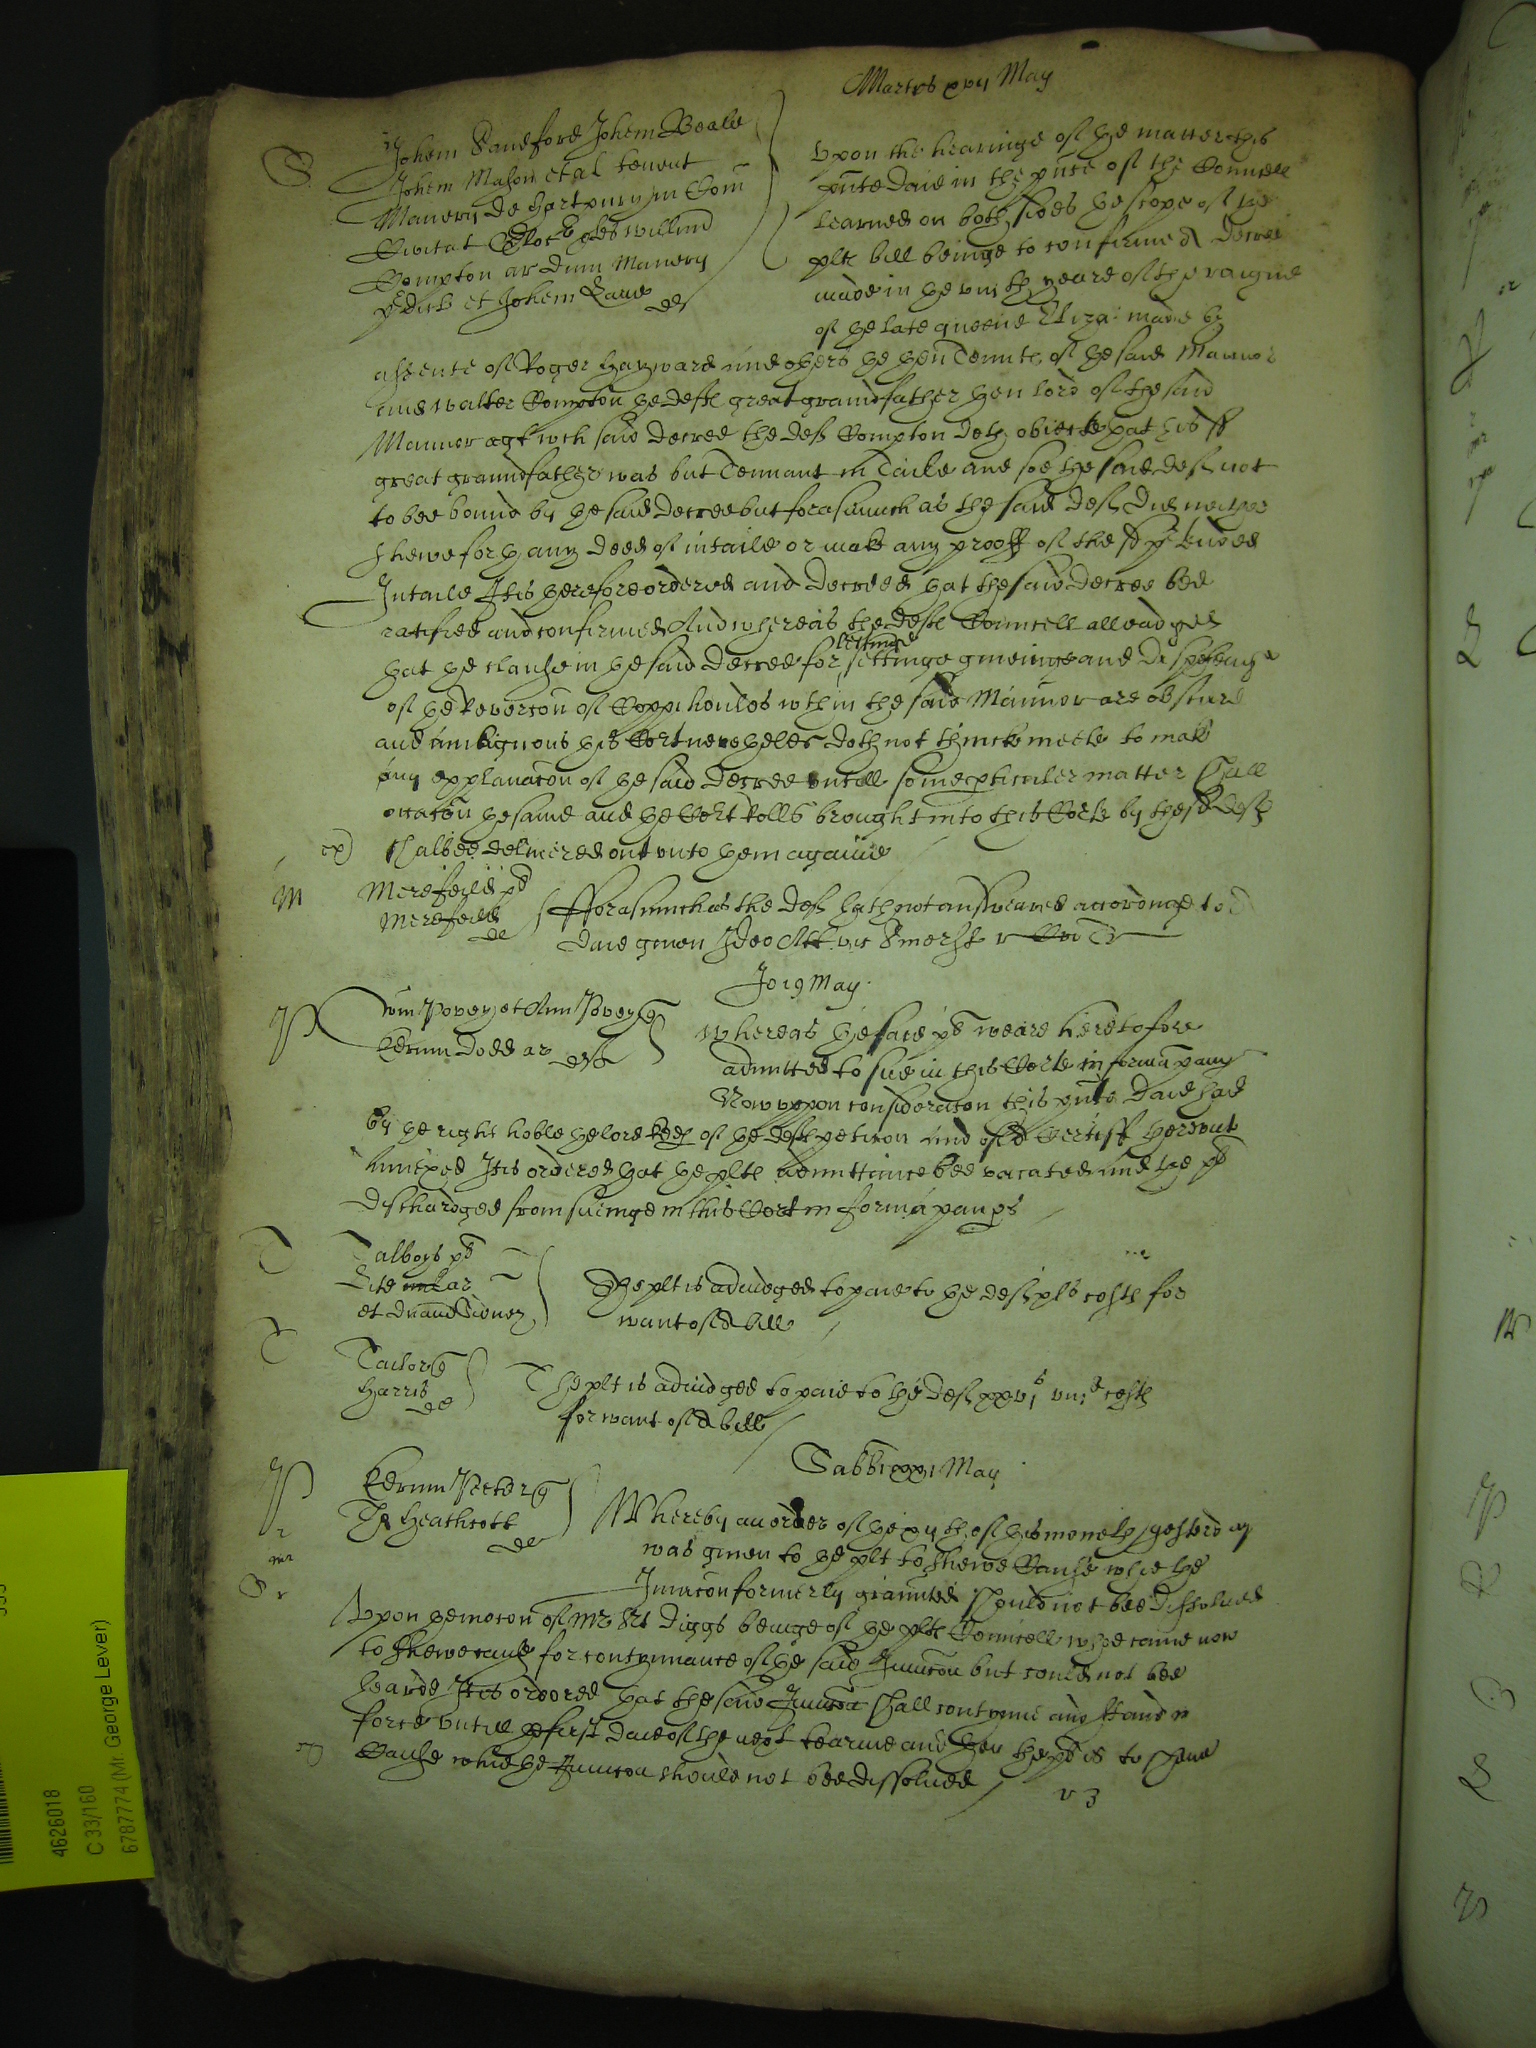 Martis xvij May
S
Johem Sandford Johem Beale
Johem Mason et al tenent
Manerij de Hartpury in Com
Civitat Glouc ples Willm
Compton ar dnm Manerij
pdict et Johem Lane
def
Vpon the hearinge of the matter this
pnte daie in the pnce of the Councell
learned on both sides the scope of the
plts bill beinge to confirme a decree
made in the viijth yeare of the raigne
of the late queene Eliza: made by
assente of Roger Hayward and others the then Tennts of the said Mannor
and Walter Compton the defts great grandfather then lord of the said
Mannor agt wch said decree the deft Compton doth obiecte that his sd
great graundfather was but Tennant in Taile and soe the said deft not
to bee bound by the said decree but forasmuch as the said deft did neither
shewe forth any deed of intaile or make any prooffe of the sd ptended
Intaile It is therefore ordered and decreed that the said decree bee
ratified and confirmed And whereas the defts Councell alleadged
letting
that the clause in the said decree for settinge giueinge and disposeinge
of the Reuercon of Coppihoulds wthin the said Mannor are obscure
and ambiguous this Cort neuertheles doth not thincke meete to make
any explanacon of the said decree vntill some pticuler matter shall
occacon the same and the Cort Rolls brought into this Corte by the sd deft
ex) shalbee deliuered out vnto them againe
M
Merefeild pl
Merefeild
de
Fforasmuch as the deft hath not answeared accordinge to a
daie giuen Ideo Att vic Somerst r
Jo 19 May
P
Wm Povey et Ann Povey q
Edrum Dodd ar
deft
Whereas the said pl weare heretofore
admitted to sue in this Corte in forma paup
Now vppon consideracon this pnte daie had
by the right hoble the lord keep of the defts peticon and of a Certiff therevnto
annexed It is ordered that the plts admittance bee vacated and the pl
dischardged from sueinge in this Cort in forma paupis
T
Talboys pl
et
The plt is adiudged to paie to the deft costs for
want of a bill
T
Tailor q
Harris
de
The plt is adiudged to paie to the deft xxvjs viijd costs
for want of a bill
Sabbi xxi May
P
Edrum Peeter q
Tho Heathcott
de
r
mr
S r
Whereby an order of the xijth of this moneth
was giuen to the plt to shewe Cause whie the
Iniuncon formerly graunted should not bee dissolued
Vpon the mocon of Mr Diggs beinge of the plts Councell whoe came now
to shewe cause for contynnance of the said Iniuncon but could not bee
heard It is ordered that the said Iniuncon shall contynue and stand in
force vntill the first daie of the next tearme and then the pl is to shew
ex) Cause whie the Iniuncon should not bee dissolued
v 3
4626018
C 33/160
6787774 (Mr. George Lever)